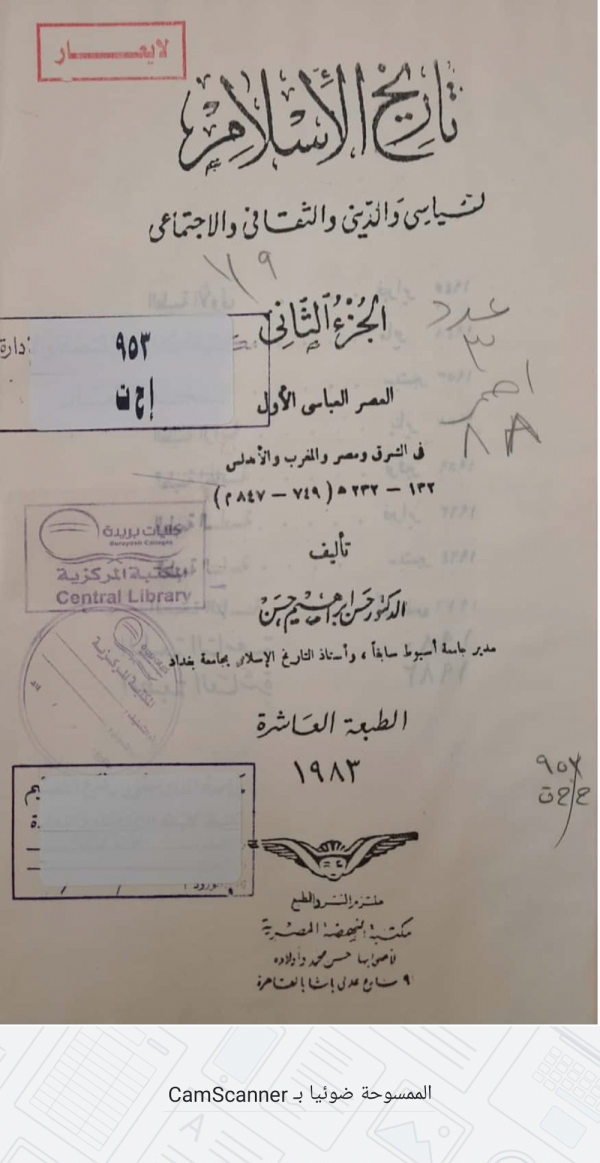 لايعـــــار
تاريخ الإسلام
السياسي والديني والثقافي والاجتماعي
١١٩
الجزء الثاني
عدد
٣
احمر
٨٨
إدارة
٩٥٣
إ ح ت
العصر العباسى الأول
فى الشرق ومصر والمغرب والأندلس
١٣٢ – ٢٣٢ ھ ( ٧٤٩ – ٨٤٧ م )
كليات بريدة
Buraydah Colleges
المكتبة المركزية
Central Library
تأليف
الدكتور حسن إبراهيم حسن
مدير جامعة أسيوط سابقاً ، وأستاذ التاريخ الإسلامى بجامعة بغداد
المكتبة المركزية
الطبعة العاشرة
١٩٨٣
٩٥٣
ملتزم النشر والطبع
مكتبة النهضة المصرية
لأصحابها حسن محمد وأولاده
٩ شارع عدلى باشا بالقاهرة
الممسوحة ضوئيا بـ CamScanner